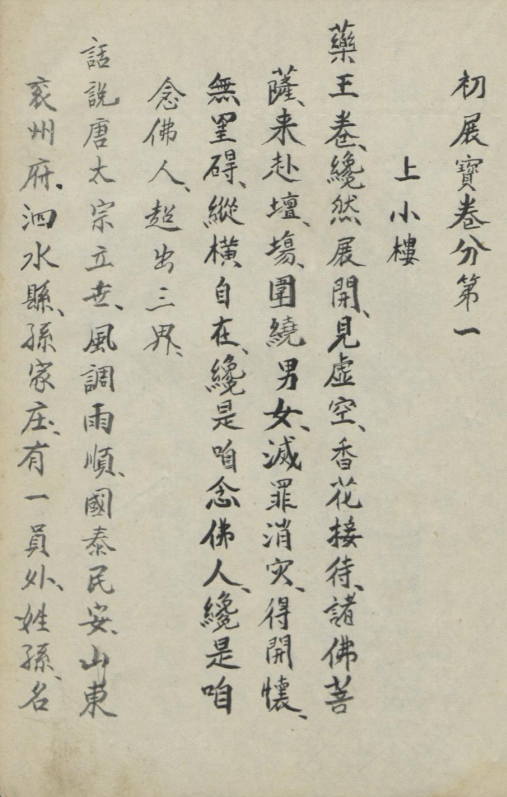 初展寶卷分第一
上小樓
藥王卷、纔然展開、見虛空、香花接待、諸佛菩
薩、来赴壇、場、圍繞男女、滅罪消灾、得開懷、
無罣碍、縱橫、自在、纔是咱念佛人、纔是咱
念佛人、超出三界、
話說唐太宗立世、風調雨順、國泰民安、山東
兗州府、泗水縣、孫家庄、有一員外、姓孫、名